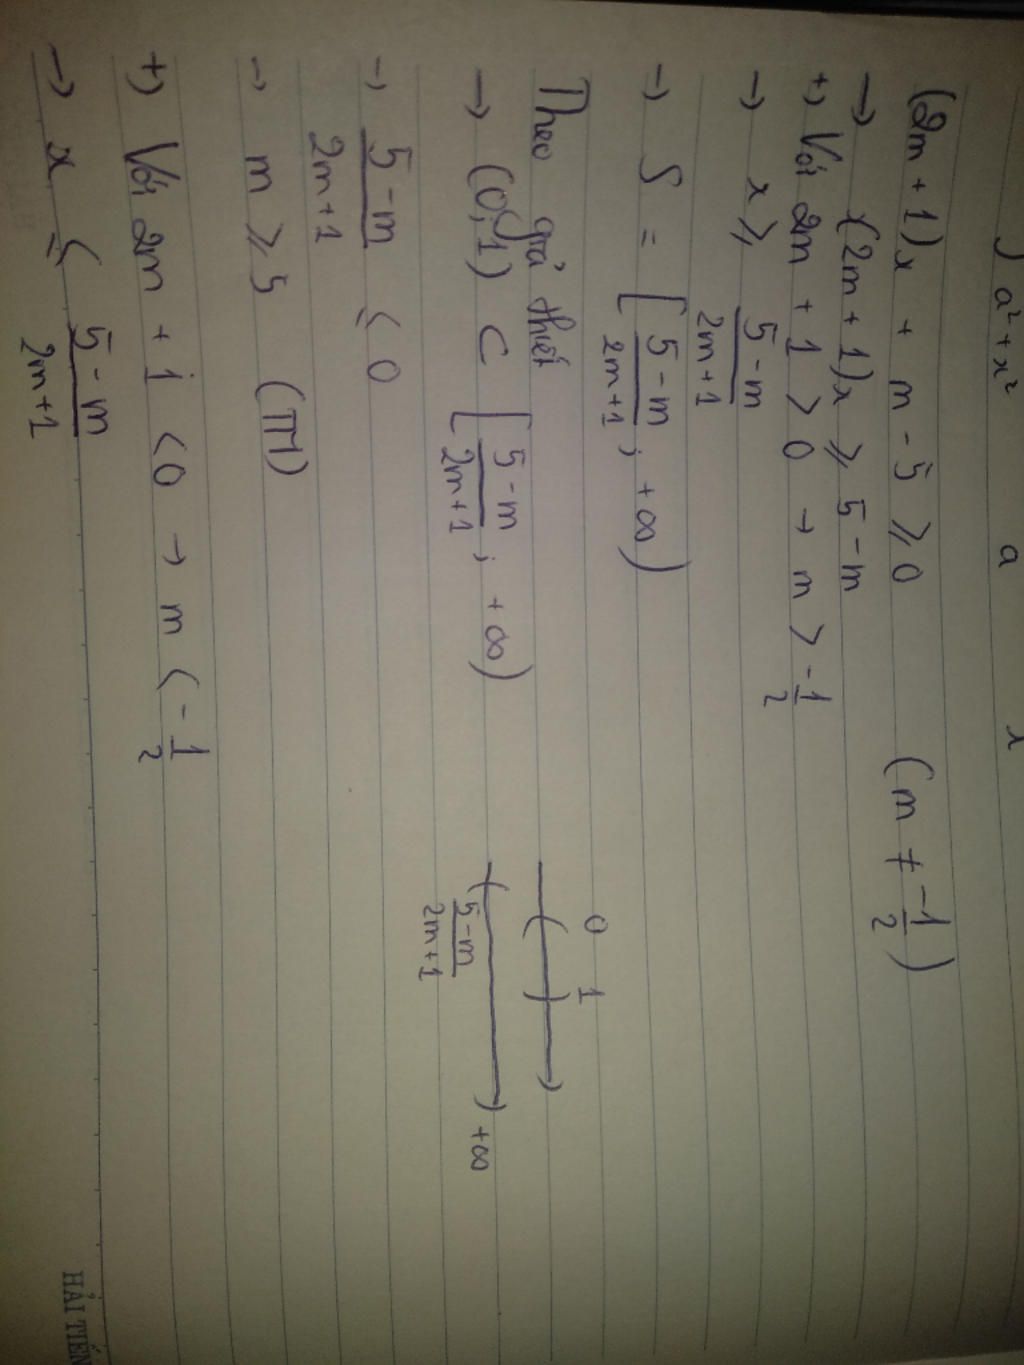 ∫ a² + x² a x
(2m + 1)x + m - 5 ⩾ 0 (m ≠ -1/2)
→ (2m + 1)x ⩾ 5 - m
+) Với 2m + 1 > 0 → m > -1/2
→ x ⩾ (5 - m)/(2m + 1)
→ S = [(5 - m)/(2m + 1) ; +∞)
Theo giả thiết
0 1
→ (0;1) ⊂ [(5 - m)/(2m + 1) ; +∞)
(5 - m)/(2m + 1) +∞
→ (5 - m)/(2m + 1) ≤ 0
→ m ⩾ 5 (TM)
+) Với 2m + 1 < 0 → m < -1/2
→ x ≤ (5 - m)/(2m + 1)
HẢI TIẾN